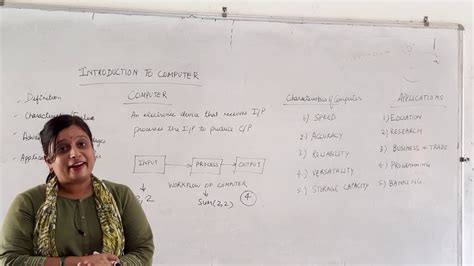 INTRODUCTION TO COMPUTER
- Definition
- Characteristics
- Applic
COMPUTER
An electronic device that receives I/P
processes the I/P to produce O/P
INPUT → PROCESS → OUTPUT
WORKFLOW OF COMPUTER
2, 2
Sum(2,2)
4
Characteristics of Computer
1) SPEED
2) ACCURACY
3) RELIABILITY
4) VERSATALITY
5) STORAGE CAPACITY
APPLICATIONS
1) EDUCATION
2) RESEARCH
3) BUSINESS & TRADE
4) PROGRAMMING
5) BANKING